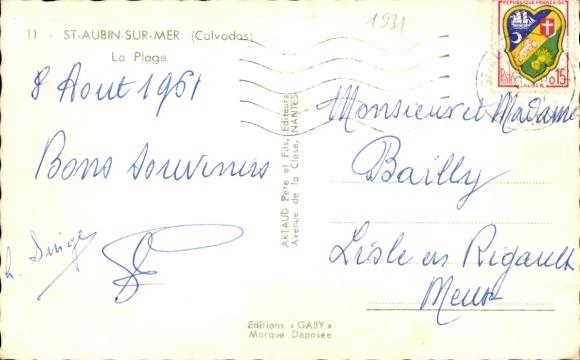 11 - ST-AUBIN-SUR-MER (Calvados)
La Plage
1931
8 Aout 1961
Bons souvenirs
ARTAUD Père et Fils, Editeurs
Avenue de la Close, NANTES
REPUBLIQUE FRANÇAISE
POSTES
0,15
ALGER
Monsieur et Madame
Bailly
Lisle en Rigault
Meuse
Editions « GABY »
Marque Déposée